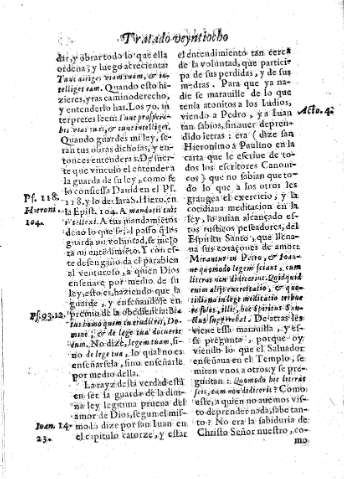 Tratado veyntiocho
dar, y obrar todo lo que ella
ordena; y luego acrecientar
Tunc diliges viam tuam, & in-
telliges eam. Quando esto hi-
zieres, y ras camino derecho,
y entenderlo has. Los 70. in-
terpretes leen: Tunc prosperè-
Quando guardes mi ley, se-
ran tus obras dichosas, y en-
tonces entenderas. De suer-
te que vinculò el entender a
la guarda de su ley, como se
lo confiessa David en el Ps.
118. y lo declara S. Hiero. en
la Epist. 104. A mandatis tuis
intellexi. A tus mandamien-
guarda mi voluntad, se mejora
mi entendimiento. Y con es-
te desengaño da el parabien
al venturoso, a quien Dios
enseñare por medio de su
ley, esto es, haziendo que la
guarde, y enseñandole en
premio de la obediencia: Bea-
tus homo quem tu erudieris, Do-
mine, & de lege tua docueris
eum. No dize, legem tuam, si-
no de lege tua, lo qual no es
enseñarsela, sino enseñarle
por medio della.
La rayz desta verdad està
en ser la guarda de la divi-
na ley legitima prueva del
amor de Dios, segun el mis-
mo lo dize por san Iuan en
el capitulo catorze, y estar
Ps. 118.
Hieroni.
104.
Ps. 93. 12.
Ioan. 14.
23.
el entendimiento tan cerca
de la voluntad, que partici-
pa de sus perdidas, y de sus
medras. Para que ya na-
die se maraville de lo que
tenia atonitos a los Iudios,
viendo a Pedro, y a Iuan
tan sabios, sin aver depren-
dido letras: era (dize san
Hieronimo a Paulino en la
carta que le escrive de to-
dos los escritores Canoni-
cos) que no sabian que to-
do lo que a los otros les
grangea el exercicio, y la
cotidiana meditacion en la
ley, lo avian alcançado es-
tos rusticos pescadores, del
Espiritu Santo, que llena-
va sus coraçones de amor:
Mirantur in Petro, & Ioan-
ne quomodo legem sciant, cum
literas non didicerint. Quidquid
enim alijs exercitatio, & quo-
tidiana in lege meditatio tribue-
re solet, illis, hoc Spiritus San-
ctus suggerebat. De atras les
viene essa maravilla, y es-
se preguntar, porque oy-
viendo lo que el Salvador
enseñava en el Templo, se
miten vnos a otros, y se pre-
guntan: Quomodo hic literas
scit, cum non didicerit? Como
este, a quien no avemos vis-
to deprender nada, sabe tan-
to? No era la sabiduria de
Christo Señor nuestro, co-
mo
Acto. 4.